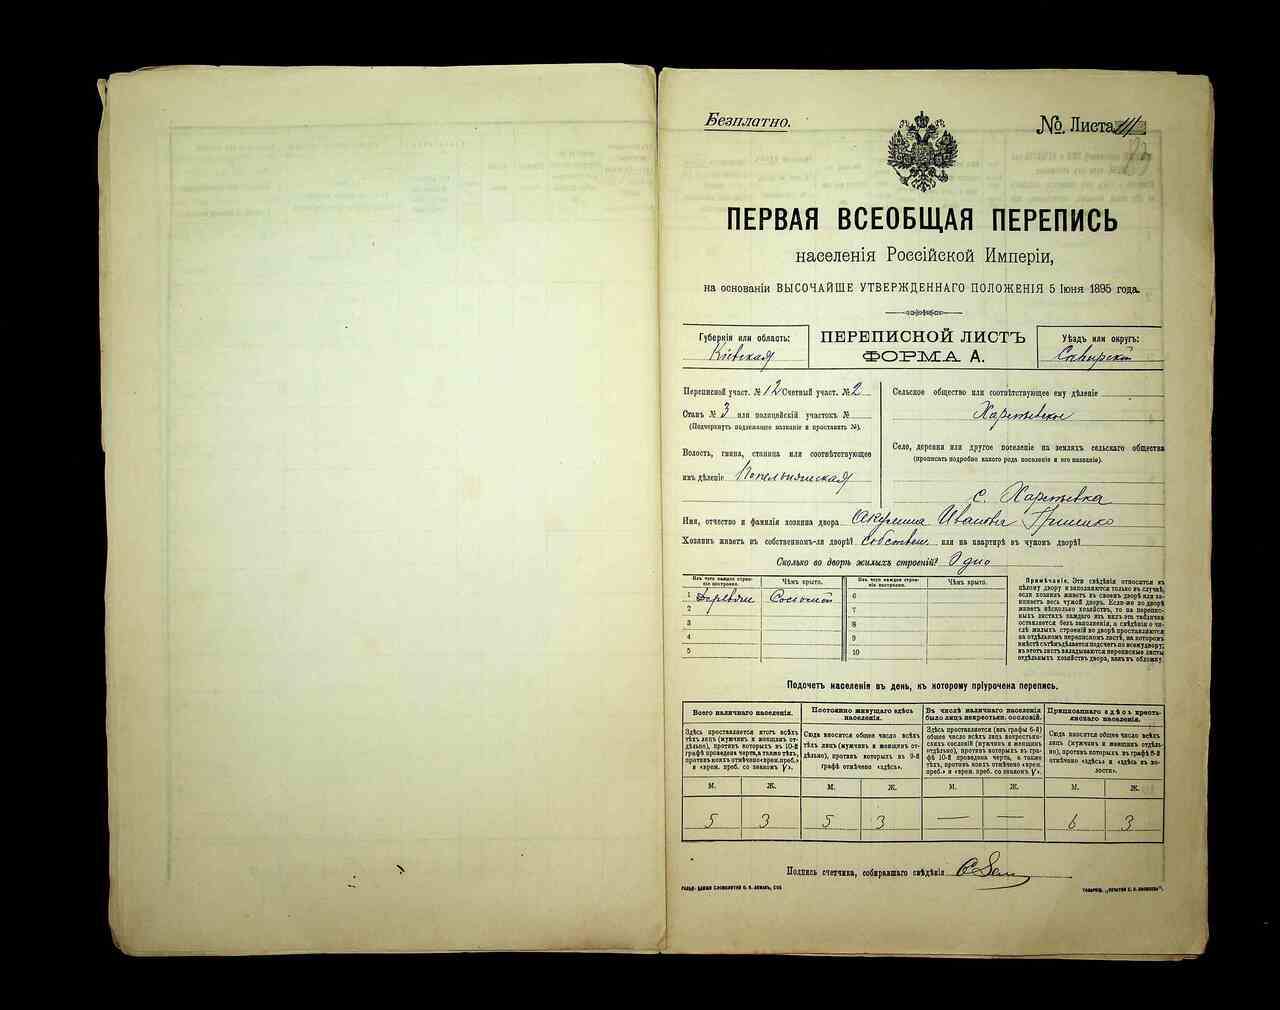 Безплатно.
№ Листа 111
23
ПЕРВАЯ ВСЕОБЩАЯ ПЕРЕПИСЬ
населенія Россійской Имперіи,
на основаніи ВЫСОЧАЙШЕ УТВЕРЖДЕННАГО ПОЛОЖЕНІЯ 5 Іюня 1895 года.
Губернія или область:
Кіевская
ПЕРЕПИСНОЙ ЛИСТЪ
ФОРМА А.
Уѣздъ или округъ:
Сквирскій
Переписной участ. № 12 Счетный участ. № 2
Станъ № 3 или полицейскій участокъ №
(Подчеркнуть подлежащее названіе и проставить №).
Волость, гмина, станица или соотвѣтствующее
имъ дѣленіе Попельнянская
Сельское общество или соотвѣтствующее ему дѣленіе
Харлѣевское
Село, деревня или другое поселеніе на земляхъ сельскаго общества
(прописать подробно какого рода поселеніе и его названіе).
с. Харлѣевка
Имя, отчество и фамилія хозяина двора Акулина Иванова Гриценко
Хозяинъ живетъ въ собственномъ-ли дворѣ? собствен. или на квартирѣ въ чужомъ дворѣ?
Сколько во дворѣ жилыхъ строеній? Одно
Изъ чего каждое строе-
ніе построено.
Чѣмъ крыто.
Изъ чего каждое строе-
ніе построено.
Чѣмъ крыто.
1 Деревян Соломой 6
2 7
3 8
4 9
5 10
Примѣчаніе. Эти свѣдѣнія относятся къ
цѣлому двору и заполняются только въ случаѣ,
если хозяинъ живетъ въ своемъ дворѣ или за-
нимаетъ весь чужой дворъ. Если-же во дворѣ
живетъ нѣсколько хозяйствъ, то на перепис-
ныхъ листахъ каждаго изъ нихъ эта табличка
оставляется безъ заполненія, а свѣдѣнія о чи-
слѣ жилыхъ строеній во дворѣ проставляются
на отдѣльномъ переписномъ листѣ, на которомъ
вмѣстѣ съ тѣмъ дѣлается подсчетъ по всему двору;
въ этотъ листъ вкладываются переписные листы
отдѣльныхъ хозяйствъ двора, какъ въ обложку.
Подсчетъ населенія въ день, къ которому пріурочена перепись.
Всего наличнаго населенія.
Постоянно живущаго здѣсь
населенія.
Въ числѣ наличнаго населенія
было лицъ некрестьян. сословій.
Приписаннаго здѣсь кресть-
янскаго населенія.
Здѣсь проставляется итогъ всѣхъ
тѣхъ лицъ (мужчинъ и женщинъ от-
дѣльно), противъ которыхъ въ 10-й
графѣ проведена черта, а также тѣхъ,
противъ коихъ отмѣчено «врем. преб.»
и «врем. преб. со знакомъ V».
Сюда вносится общее число всѣхъ
тѣхъ лицъ (мужчинъ и женщинъ от-
дѣльно), противъ которыхъ въ 9-й
графѣ отмѣчено «здѣсь».
Здѣсь проставляется (изъ графы 6-й)
общее число всѣхъ лицъ некрестьян-
скихъ сословій (мужчинъ и женщинъ
отдѣльно), противъ которыхъ въ гра-
фѣ 10-й проведена черта, а также
тѣхъ, противъ коихъ отмѣчено «врем.
преб.» и «врем. преб. со знакомъ V».
Сюда вносится общее число всѣхъ
лицъ (мужчинъ и женщинъ отдѣль-
но), противъ которыхъ въ графѣ 8-й
отмѣчено «здѣсь» и «здѣсь въ во-
лости».
М. Ж. М. Ж. М. Ж. М. Ж.
5 3 5 3 — — 6 3
Подпись счетчика, собиравшаго свѣдѣнія